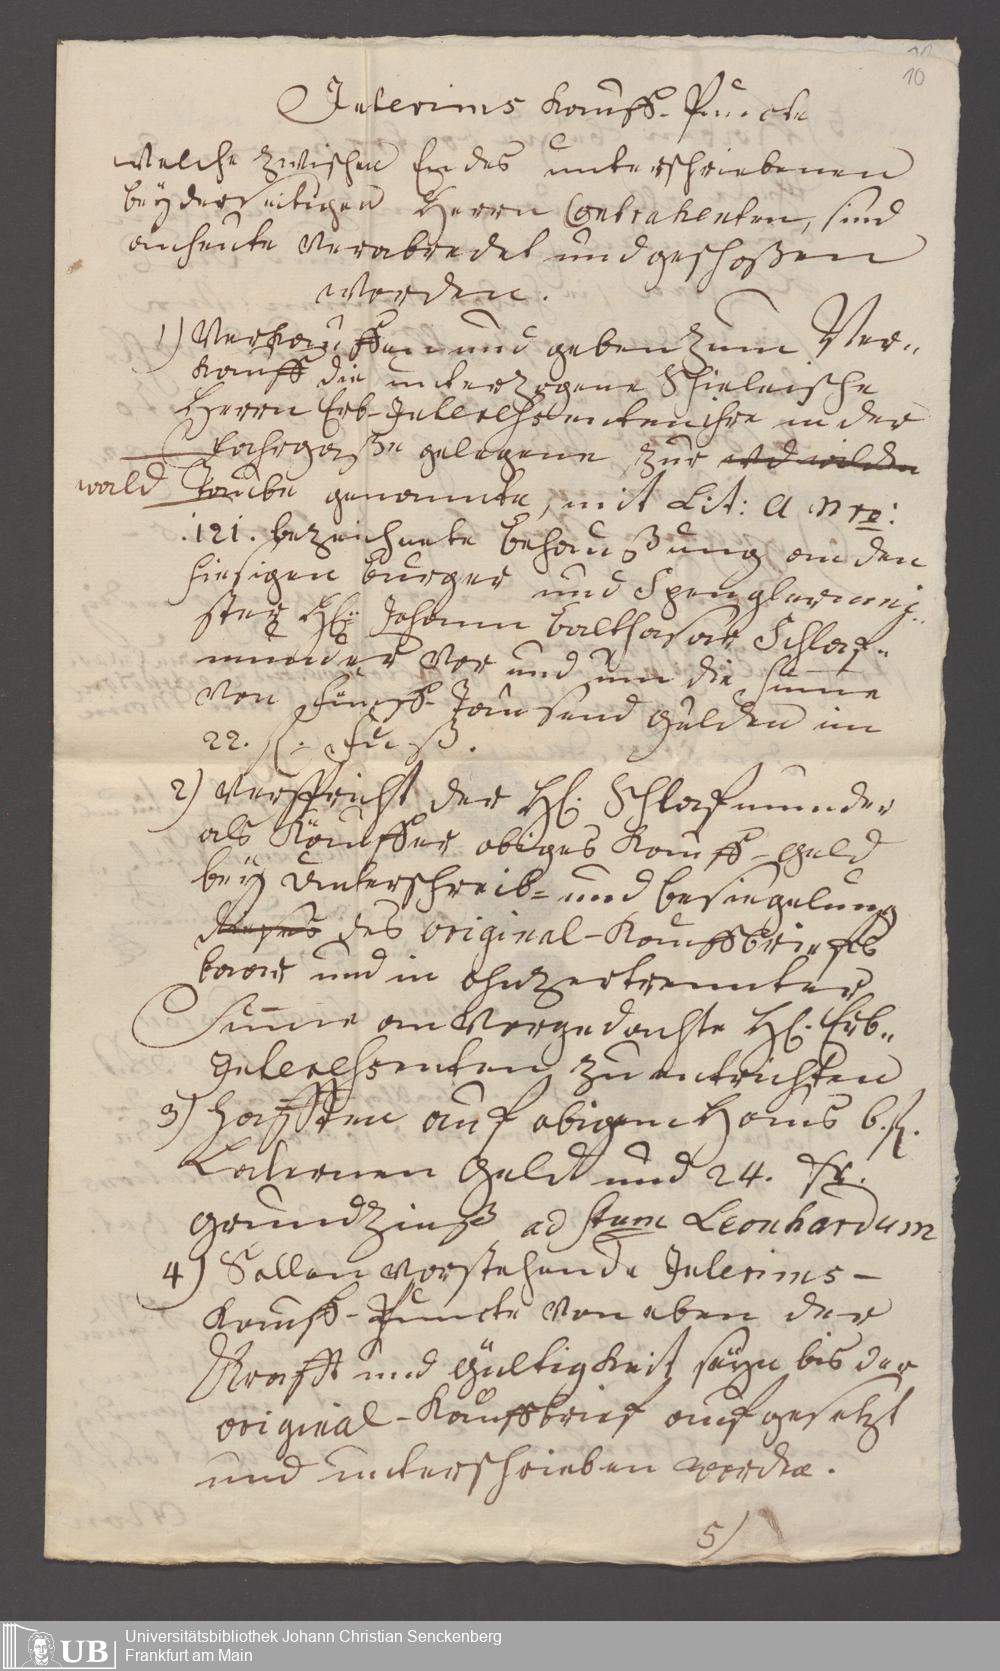 10
Interims Kauff-Puncte
welche zwischen Endes unterschriebenen
beyderseitigen Herrn Contrahenten, sind
anheute verabredet und geschoßen
worden.
1) Verkauffen und geben zum Ver„
kauff die unterzogene Thieleische
Herrn Erb-Interessenten ihre in der
Fahrgaße gelegene zur wilden
wald Taube genannte, mit Lit: A Nro:
121. bezeichnete Behaußung an den
hiesigen burger und Spenglermei„
ster H. Johann Balthasar Schlaf„
munder vor und um die Summe
von Fünff-Tausend Gulden im
22. fl. Fuß.
2) Verspricht der H. Schlafmunder
als Käuffer obiges Kauff-Geld
bey Unterschreib- und Besiegelung
dieses des original-Kauffbriefs
baar und in ohnzertrennter
Summe an Vorgedachte H. Erb„
Interessenten zu entrichten
3) Hafften auf obigem Haus 6. fl.
Laternen Geld und 24. xr.
Grundzinß ad stum Leonhardum
4) Sollen vorstehende Interims-
Kauff-Puncte von eben der
Krafft und Gültigkeit seyn bis der
original-Kauffbrief aufgesetzt
und unterschrieben worden.
5)
UB
Universitätsbibliothek Johann Christian Senckenberg
Frankfurt am Main